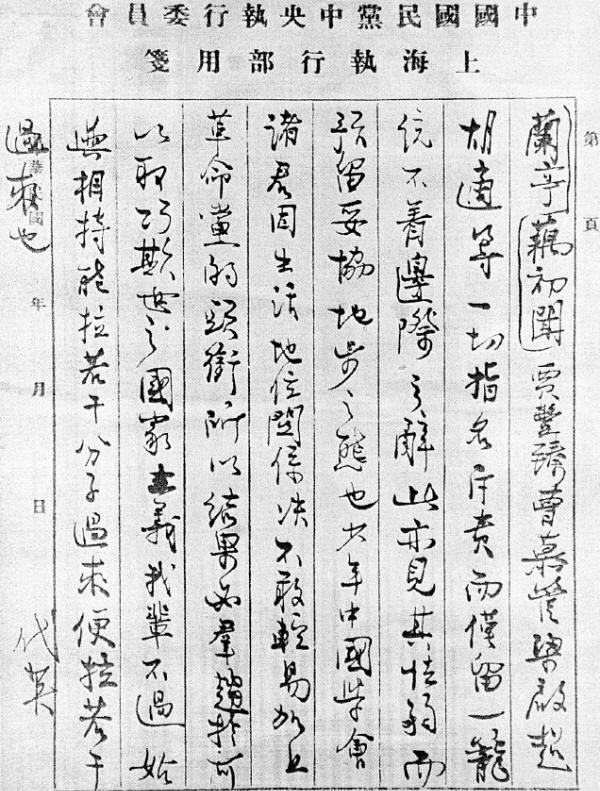 中國國民黨中央執行委員會
上海執行部用箋
第 頁
蘭亭藕初聞賈豐臻曹慕管梁啟超
胡適等一切指名斥責而僅留一籠
統不着邊際之辭此亦見其怯弱而
預留妥協地步之態也少年中國學會
諸君因生活地位關係決不敢輕易加上
革命黨的頭銜所以結果必羣趨於可
以取巧欺世之國家主義我輩不過姑
與相持能拉若干分子過來便拉若干
過來也
代英
華民國 年 月 日